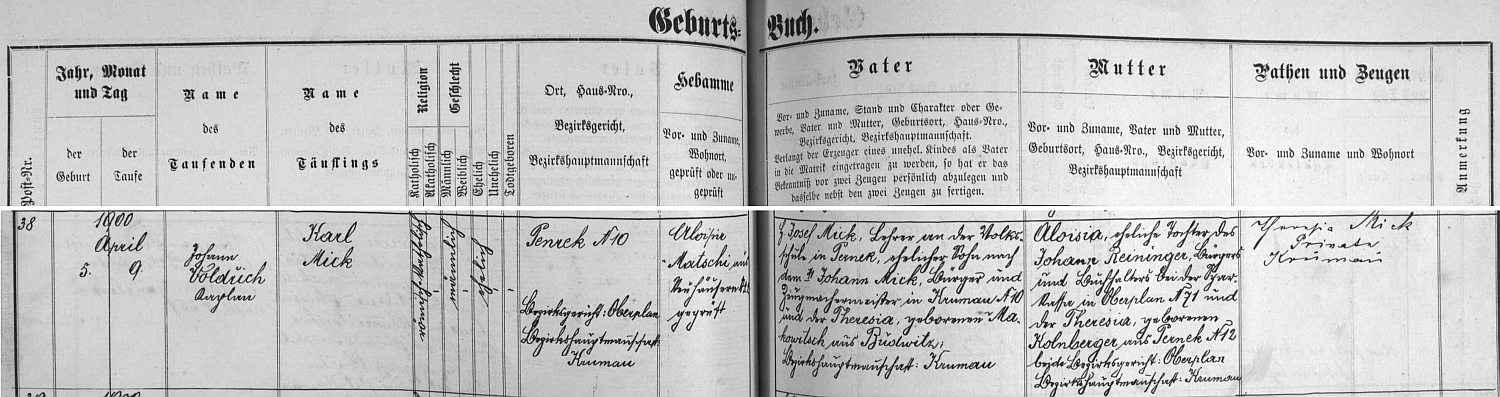 Geburts-Buch.
Post-Nr.
Jahr, Monat
und Tag
der
Geburt
der
Taufe
Name
des
Taufenden
Name
des
Täuflings
Religion
Katholisch
Akatholisch
Geschlecht
Männlich
Weiblich
Ehelich
Unehelich
Todtgeboren
Ort, Haus-Nro.,
Bezirksgericht,
Bezirkshauptmannschaft
Hebamme
Vor- und Zuname,
Wohnort,
geprüft oder un-
geprüft
Vater
Vor- und Zuname, Stand und Charakter oder Ge-
werbe, Vater und Mutter, Geburtsort, Haus-Nro.,
Bezirksgericht, Bezirkshauptmannschaft.
Verlangt der Erzeuger eines unehel. Kindes als Vater
in die Matrik eingetragen zu werden, so hat er das
Bekenntniß vor zwei Zeugen persönlich abzulegen und
dasselbe nebst den zwei Zeugen zu fertigen.
Mutter
Vor- und Zuname, Vater und Mutter,
Geburtsort, Haus-Nro., Bezirksgericht,
Bezirkshauptmannschaft
Pathen und Zeugen
Vor- und Zuname und Wohnort
Anmerkung
38
1900
April
5. 9.
Johann
Voldřich
Kaplan
Karl
Mick
römisch-katholisch
männlich
ehelich
Pernek N 10
Bezirksgericht: Oberplan
Bezirkshauptmannschaft:
Krumau
Aloisia
Matschi, aus
geprüft
Josef Mick, Lehrer an der Volks-
schule in Pernek, ehelicher Sohn nach
dem Johann Mick, Bürger und
Zeugmachermeister in Krumau N 10
und der Theresia, geborenen Ma-
kowitsch aus Budwitz,
Bezirkshauptmannschaft: Krumau
Aloisia, eheliche Tochter des
Johann Reininger, Bürgers
und Buchhalters bei der Spar-
kassa in Oberplan N 71 und
der Theresia, geborenen
Kolnberger aus Pernek N 12
beide Bezirksgericht: Oberplan
Bezirkshauptmannschaft: Krumau
Theresia Mick
Private
Krumau